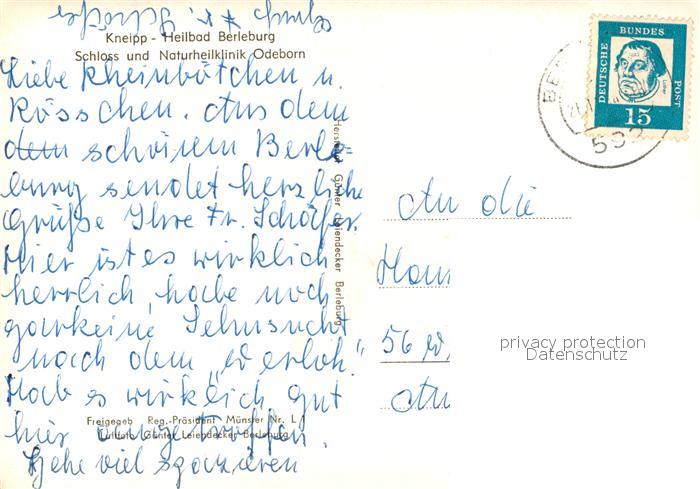 Kneipp - Heilbad Berleburg
Schloss und Naturheilklinik Odeborn
Liebe Rheinbötchen u.
Rösschen. Aus dem
dem schönem Berle=
burg sendet herzliche
Grüße Ihre Fr. Schäfer.
Hier ist es wirklich
herrlich, habe noch
garkeine Sehnsucht
nach dem
Hab es wirklich gut
hier angetroffen.
Gehe viel spazieren
Freigegeb. Reg.-Präsident Münster Nr. L
Luftfoto Günter Leiendecker Berleburg
Hersteller Günter Leiendecker Berleburg
DEUTSCHE BUNDES POST
Luther
15
592
An die
56 W.
An
privacy protection
Datenschutz